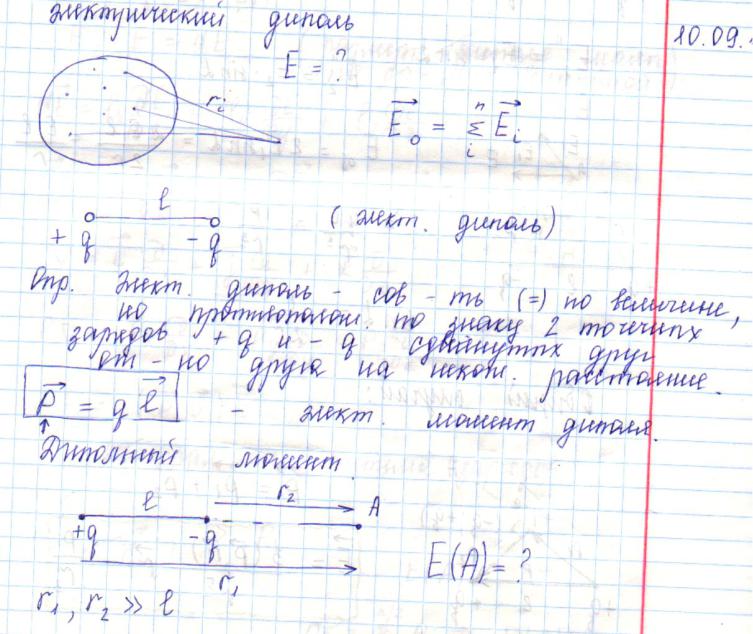 электрический диполь
10.09.
E = ?
r_i
E⃗₀ = Σ_i^n E⃗_i
l
+q -q
(элект. диполь)
Опр. Элект. диполь - сов-ть (=) по величине,
но противополож. по знаку 2 точечных
зарядов +q и -q сдвинутых друг
от-но друга на некот. расстояние.
p⃗ = q l⃗ - элект. момент диполя.
↑
Дипольный момент.
r₂
l A
+q -q
r₁
E(A) = ?
r₁, r₂ >> l